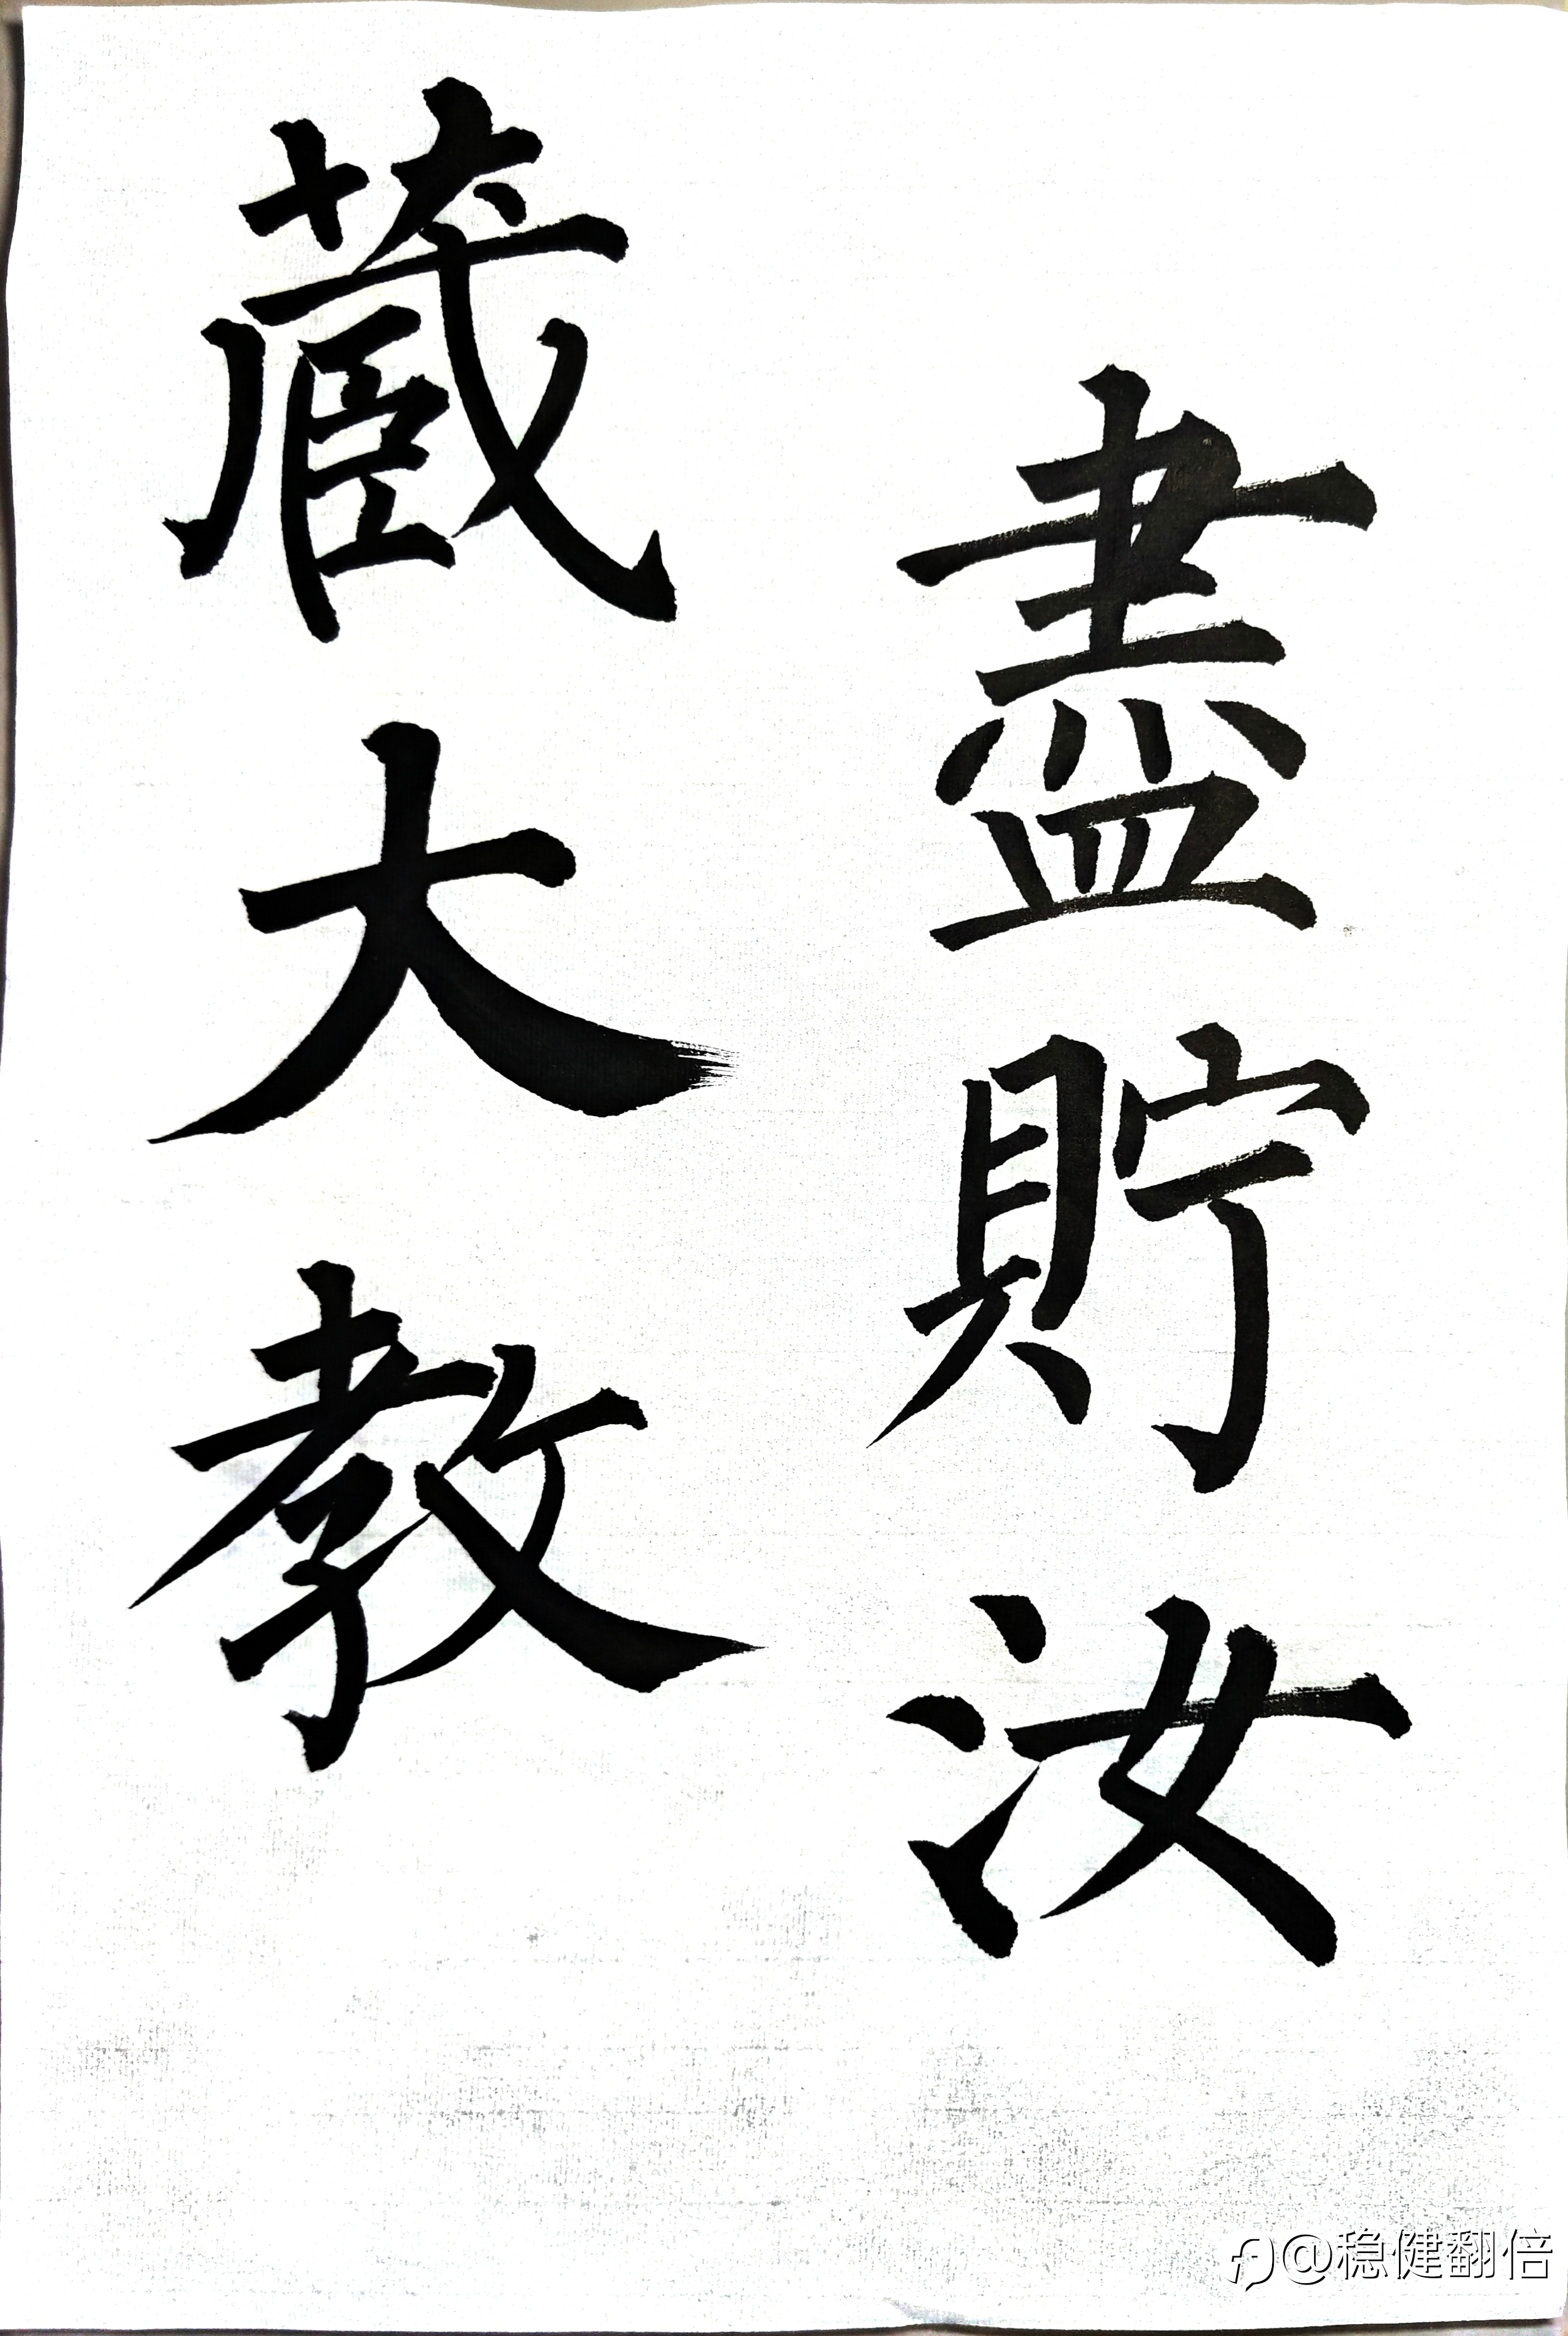 盡貯汝
藏大教
@稳健翻倍